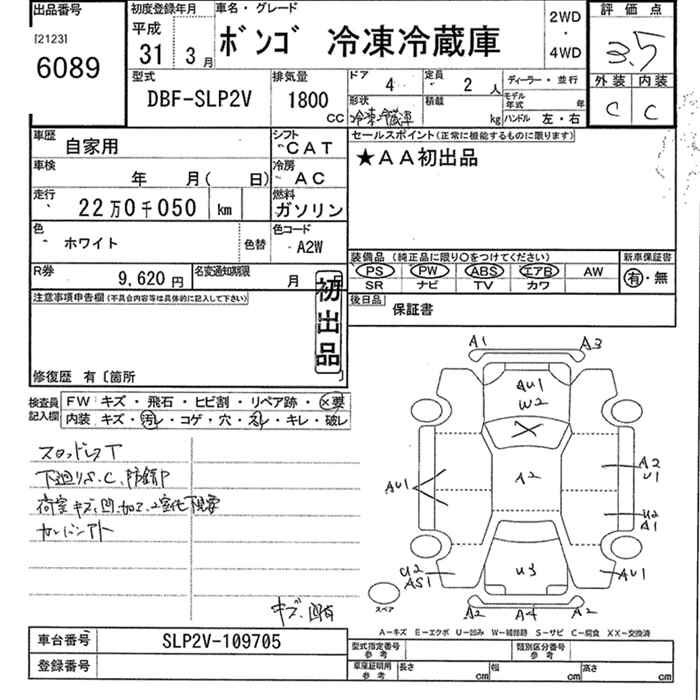 出品番号
[2123]
6089
初度登録年月
平成
31 3月
車名・グレード
ボンゴ 冷凍冷蔵庫
2WD
・
4WD
評価点
3.5
外装 内装
C C
型式
DBF-SLP2V
排気量
1800
CC
ドア
4
定員
2 人
形状
冷凍冷蔵庫
積載
kg
ディーラー・並行
モデル年式 年
ハンドル 左・右
車歴
自家用
シフト
CAT
車検
年 月( 日)
冷房
AC
走行
22万0千050 km
燃料
ガソリン
色
ホワイト
色替
色コード
A2W
R券
9,620円
名変通知期限
月
セールスポイント(正常に機能するものに限ります)
★AA初出品
装備品 (純正品に限り○をつけてください)
PS PW ABS エアB AW
SR ナビ TV カワ
新車保証書
有・無
後日品
保証書
注意事項申告欄(不具合内容等は具体的に記入して下さい)
初出品
修復歴 有〔箇所
検査員記入欄
FW キズ・飛石・ヒビ割・リペア跡・×要
内装 キズ・汚レ・コゲ・穴・・キレ・破レ
スタッドレスT
下廻りS.C、防錆P
荷室キズ、凹、加工、
キズ、凹有
A1 A3
AU1
W2
A2
AU1
A2
U1
U2
A1
U2
AS1
U3
AU1
スペア
A2 A4 A2
A-キズ E-エクボ U-凹み W-補修跡 S-サビ C-腐食 XX-交換済
車台番号
SLP2V-109705
登録番号
型式指定番号
参考
類別区分番号
参考
車庫証明用
参考
長さ cm
幅 cm
高さ cm